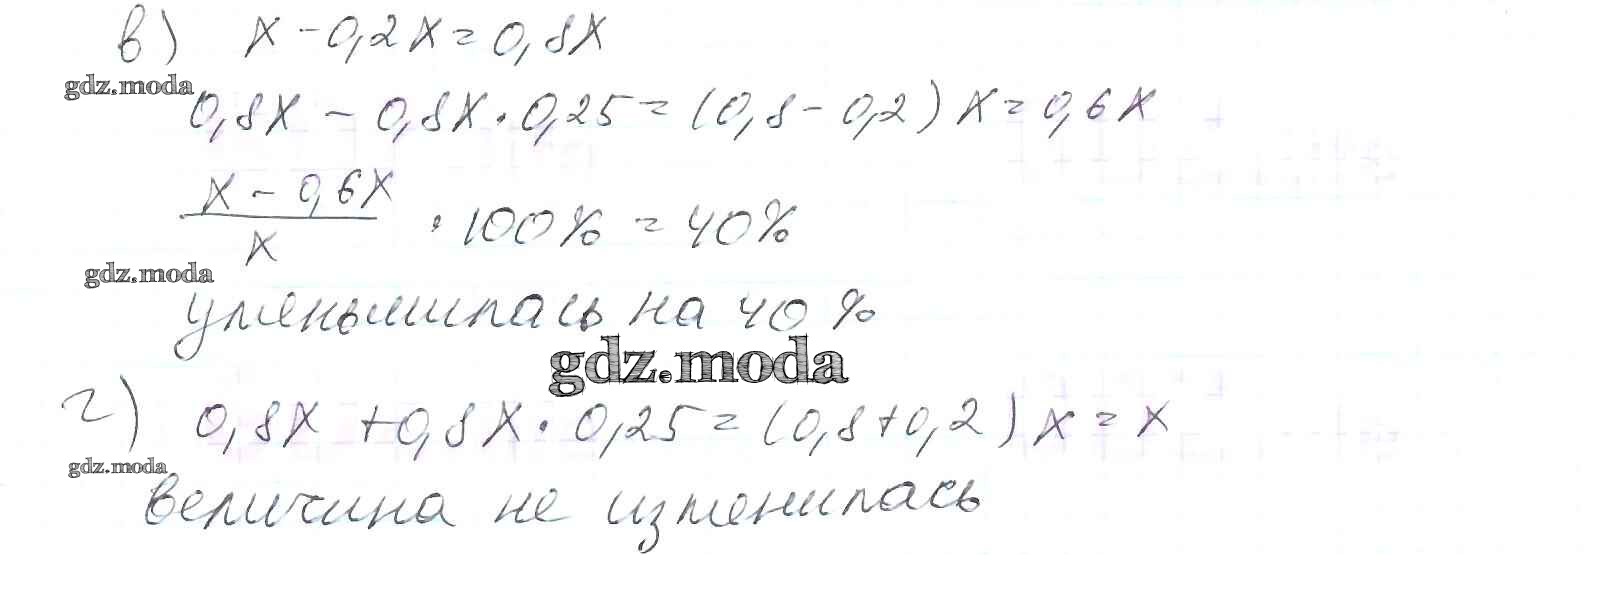 в) x - 0,2x = 0,8x
gdz.moda
0,8x - 0,8x · 0,25 = (0,8 - 0,2) x = 0,6x
x - 0,6x
x
· 100% = 40%
gdz.moda
уменьшилась на 40 %
gdz.moda
г) 0,8x + 0,8x · 0,25 = (0,8 + 0,2) x = x
gdz.moda
величина не изменилась